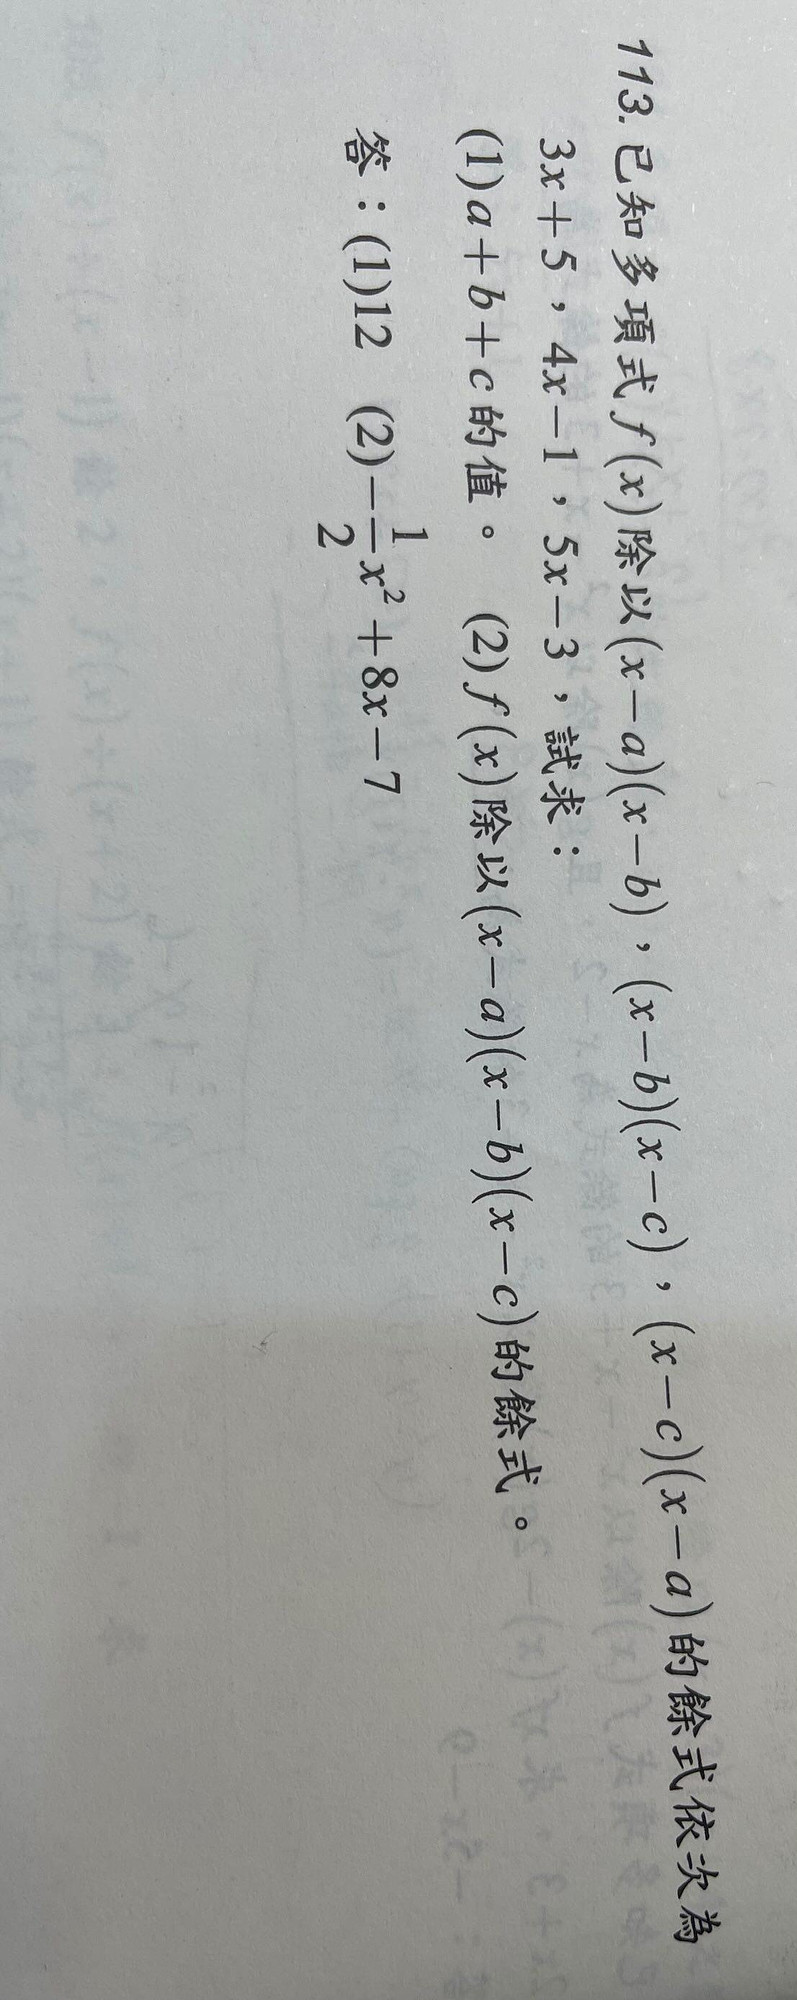 113. 已知多項式f(x)除以(x−a)(x−b)，(x−b)(x−c)，(x−c)(x−a)的餘式依次為
3x+5，4x−1，5x−3，試求：
(1)a+b+c的值。 (2)f(x)除以(x−a)(x−b)(x−c)的餘式。
答：(1)12 (2)−\frac{1}{2}x²+8x−7